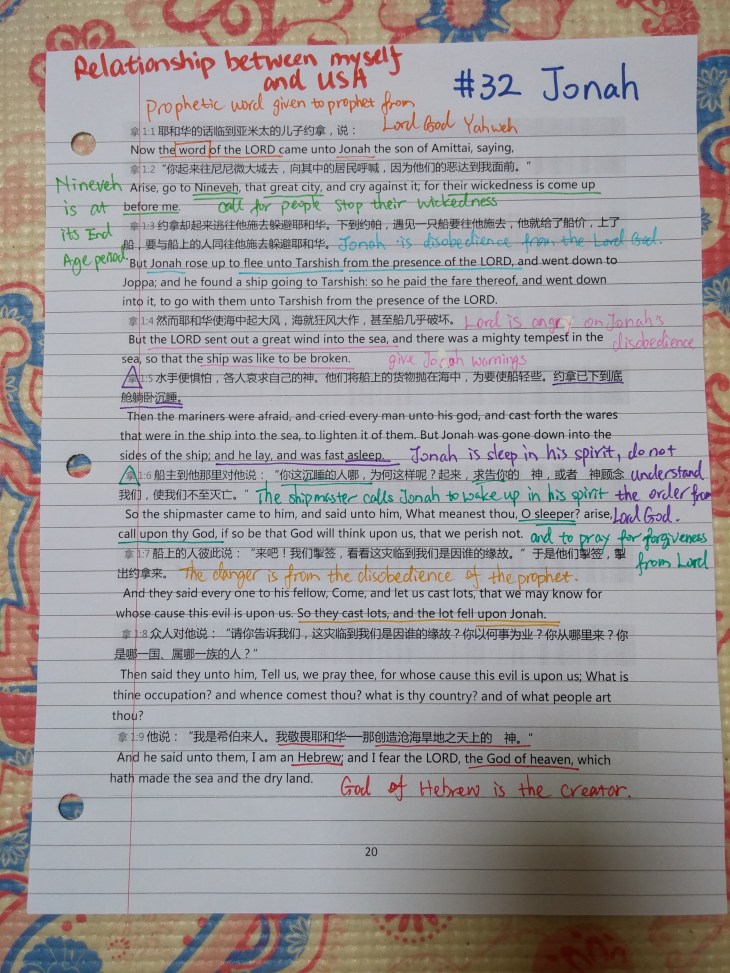 Relationship between myself
and USA
#32 Jonah
Prophetic word given to prophet from
Lord God Yahweh
拿 1:1 耶和华的话临到亚米太的儿子约拿，说：
Now the word of the LORD came unto Jonah the son of Amittai, saying,
拿 1:2 “你起来往尼尼微大城去，向其中的居民呼喊，因为他们的恶达到我面前。”
Nineveh
is at
its End
Age period.
Arise, go to Nineveh, that great city, and cry against it; for their wickedness is come up
before me. call for people stop their wickedness
拿 1:3 约拿却起来逃往他施去躲避耶和华。下到约帕，遇见一只船要往他施去，他就给了船价，上了
船，要与船上的人同往他施去躲避耶和华。 Jonah is disobedience from the Lord God.
But Jonah rose up to flee unto Tarshish from the presence of the LORD, and went down to
Joppa; and he found a ship going to Tarshish: so he paid the fare thereof, and went down
into it, to go with them unto Tarshish from the presence of the LORD.
拿 1:4 然而耶和华使海中起大风，海就狂风大作，甚至船几乎破坏。 Lord is angry on Jonah's
disobedience
But the LORD sent out a great wind into the sea, and there was a mighty tempest in the
sea, so that the ship was like to be broken. give Jonah warnings
拿 1:5 水手便惧怕，各人哀求自己的神。他们将船上的货物抛在海中，为要使船轻些。约拿已下到底
舱躺卧沉睡。
Then the mariners were afraid, and cried every man unto his god, and cast forth the wares
that were in the ship into the sea, to lighten it of them. But Jonah was gone down into the
sides of the ship; and he lay, and was fast asleep. Jonah is sleep in his spirit, do not
understand
the order from
Lord God.
拿 1:6 船主到他那里对他说：“你这沉睡的人哪，为何这样呢？起来，求告你的 神，或者 神顾念
我们，使我们不至灭亡。” The shipmaster calls Jonah to wake up in his spirit
So the shipmaster came to him, and said unto him, What meanest thou, O sleeper? arise,
call upon thy God, if so be that God will think upon us, that we perish not. and to pray for forgiveness
from Lord
拿 1:7 船上的人彼此说：“来吧！我们掣签，看看这灾临到我们是因谁的缘故。”于是他们掣签，掣
出约拿来。 The danger is from the disobedience of the prophet.
And they said every one to his fellow, Come, and let us cast lots, that we may know for
whose cause this evil is upon us. So they cast lots, and the lot fell upon Jonah.
拿 1:8 众人对他说：“请你告诉我们，这灾临到我们是因谁的缘故？你以何事为业？你从哪里来？你
是哪一国、属哪一族的人？”
Then said they unto him, Tell us, we pray thee, for whose cause this evil is upon us; What is
thine occupation? and whence comest thou? what is thy country? and of what people art
thou?
拿 1:9 他说：“我是希伯来人。我敬畏耶和华──那创造沧海旱地之天上的 神。”
And he said unto them, I am an Hebrew; and I fear the LORD, the God of heaven, which
hath made the sea and the dry land.
God of Hebrew is the creator.
20